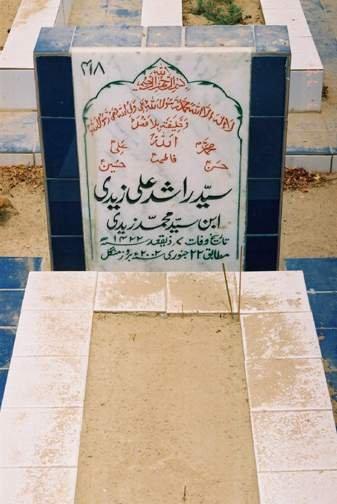 ۳۱۸
بسم اللہ الرحمن الرحیم
لا الہ الا اللہ محمد رسول اللہ علی ولی اللہ وصی رسول اللہ
و خلیفتہ بلا فصل
محمدؐ اللہ علیؑ
حسنؑ فاطمہؑ حسینؑ
سیّد راشد علی زیدی
ابن سیّد محمّد زیدی
تاریخ وفات ۷ ذیقعد ۱۴۲۲ھ
مطابق ۲۲ جنوری ۲۰۰۲ء بروز منگل